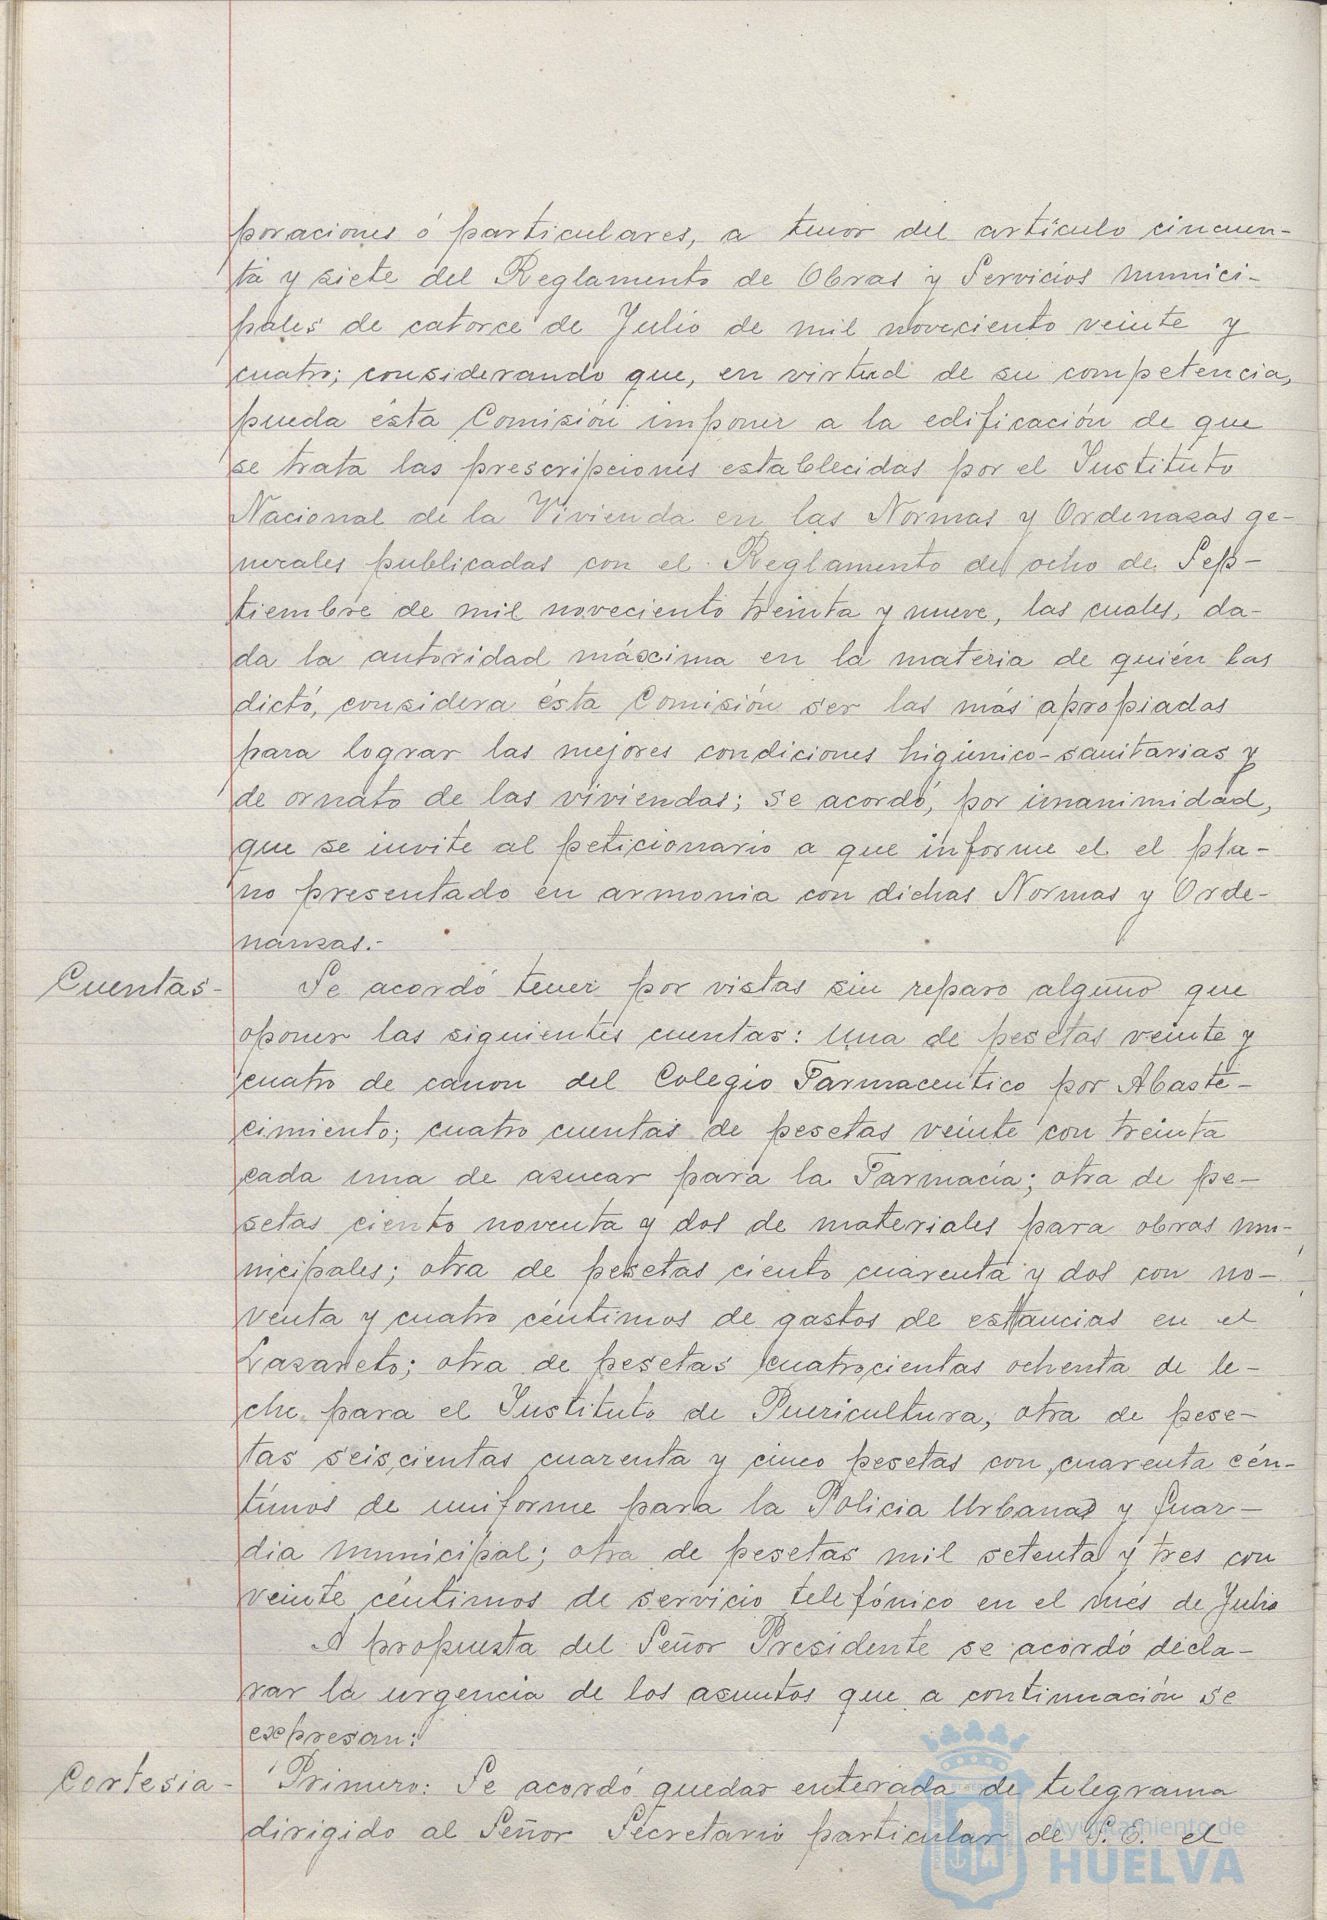 poraciones ó particulares, a tenor del artículo cincuen-
ta y siete del Reglamento de Obras y Servicios munici-
pales de catorce de Julio de mil noveciento veinte y
cuatro; considerando que, en virtud de su competencia,
pueda ésta Comisión imponer a la edificación de que
se trata las prescripciones establecidas por el Instituto
Nacional de la Vivienda en las Normas y Ordenazas ge-
nerales publicadas con el Reglamento de ocho de Sep-
tiembre de mil noveciento treinta y nueve, las cuales, da-
da la autoridad máxima en la materia de quién las
dictó, considera ésta Comisión ser las más apropiadas
para lograr las mejores condiciones higiénico-sanitarias y
de ornato de las viviendas; se acordó, por unanimidad,
que se invite al peticionario a que informe el el pla-
no presentado en armonia con dichas Normas y Orde-
nanzas.-
Cuentas- Se acordó tener por vistas sin reparo alguno que
oponer las siguientes cuentas: una de pesetas veinte y
cuatro de canon del Colegio Farmaceutico por Abaste-
cimiento; cuatro cuentas de pesetas veinte con treinta
cada una de azucar para la Farmacía; otra de pe-
setas ciento noventa y dos de materiales para obras mu-
nicipales; otra de pesetas ciento cuarenta y dos con no-
venta y cuatro céntimos de gastos de estancias en el
Lazareto; otra de pesetas cuatrocientas ochenta de le-
che para el Instituto de Puericultura; otra de pese-
tas seiscientas cuarenta y cinco pesetas con cuarenta cén-
timos de uniforme para la Policia Urbana y Guar-
dia municipal; otra de pesetas mil setenta y tres con
veinte céntimos de servicio telefónico en el més de Julio
A propuesta del Señor Presidente se acordó decla-
rar la urgencia de los asuntos que a continuación se
expresan:
Cortesia- Primero: Se acordó quedar enterada de telegrama
dirigido al Señor Secretario particular de S. E. el
Ayuntamiento de
HUELVA